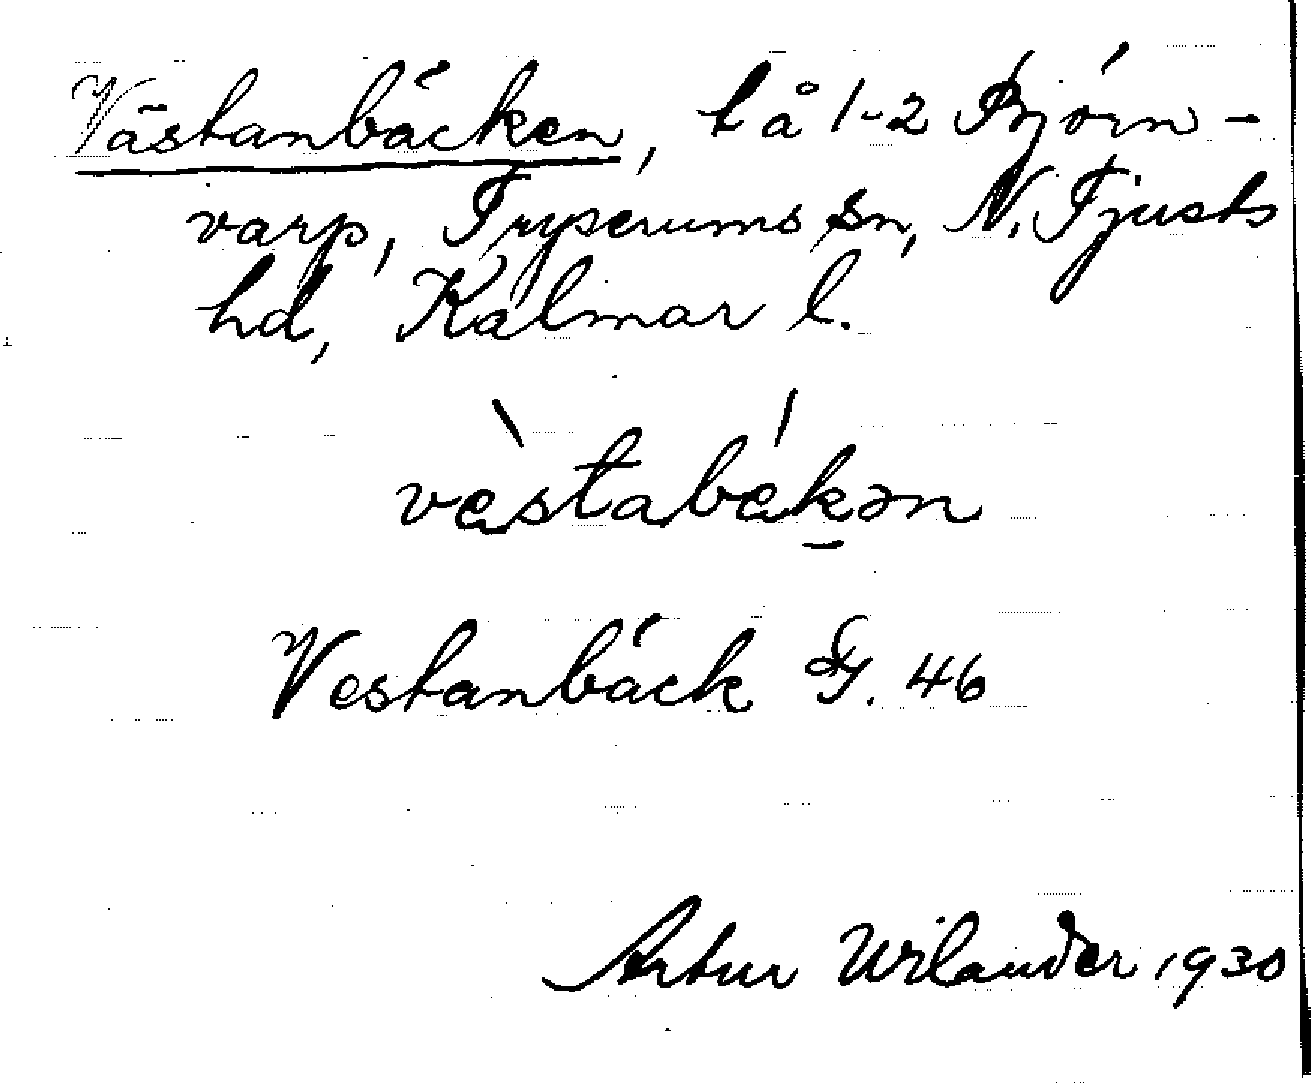 Västanbäcken, lå 1-2 Björn-
varp, Tryserums sn, N. Tjusts
hd, Kalmar l.
vestabekən
Vestanbäck G. 46
Artur Wilander 1930